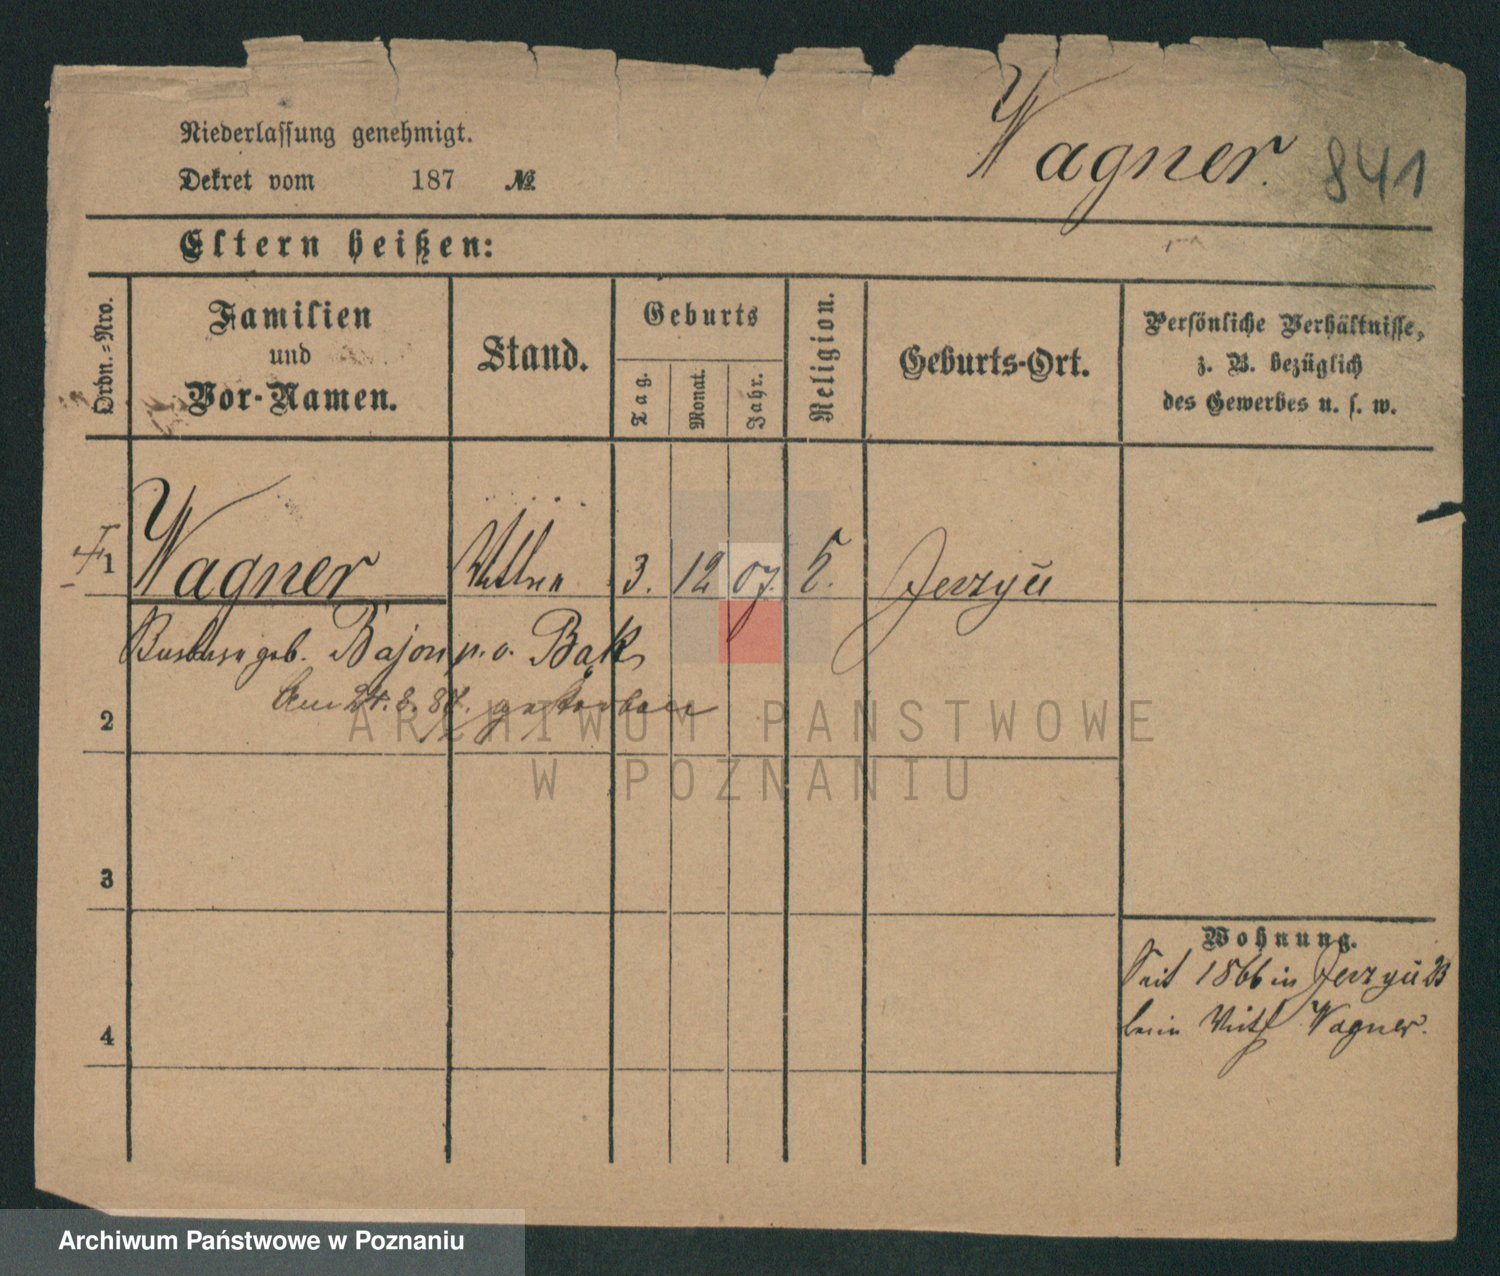 Wagner. 841
Niederlassung genehmigt.
Dekret vom 187 №
Eltern heißen:
Ordn.-Nro.
Familien
und
Vor-Namen.
Stand.
Geburts
Tag.
Monat.
Jahr.
Religion.
Geburts-Ort.
Persönliche Verhältnisse,
z. B. bezüglich
des Gewerbes u. s. w.
1 Wagner 3. 12 07. Jerzyü
geb. Bajon p. o. Bąk
am 24. 8. 87. gestorben
2
3
4
Wohnung.
Seit 1866 in Jerzyü
beim Wirth Wagner.
ARCHIWUM PAŃSTWOWE
W POZNANIU
Archiwum Państwowe w Poznaniu